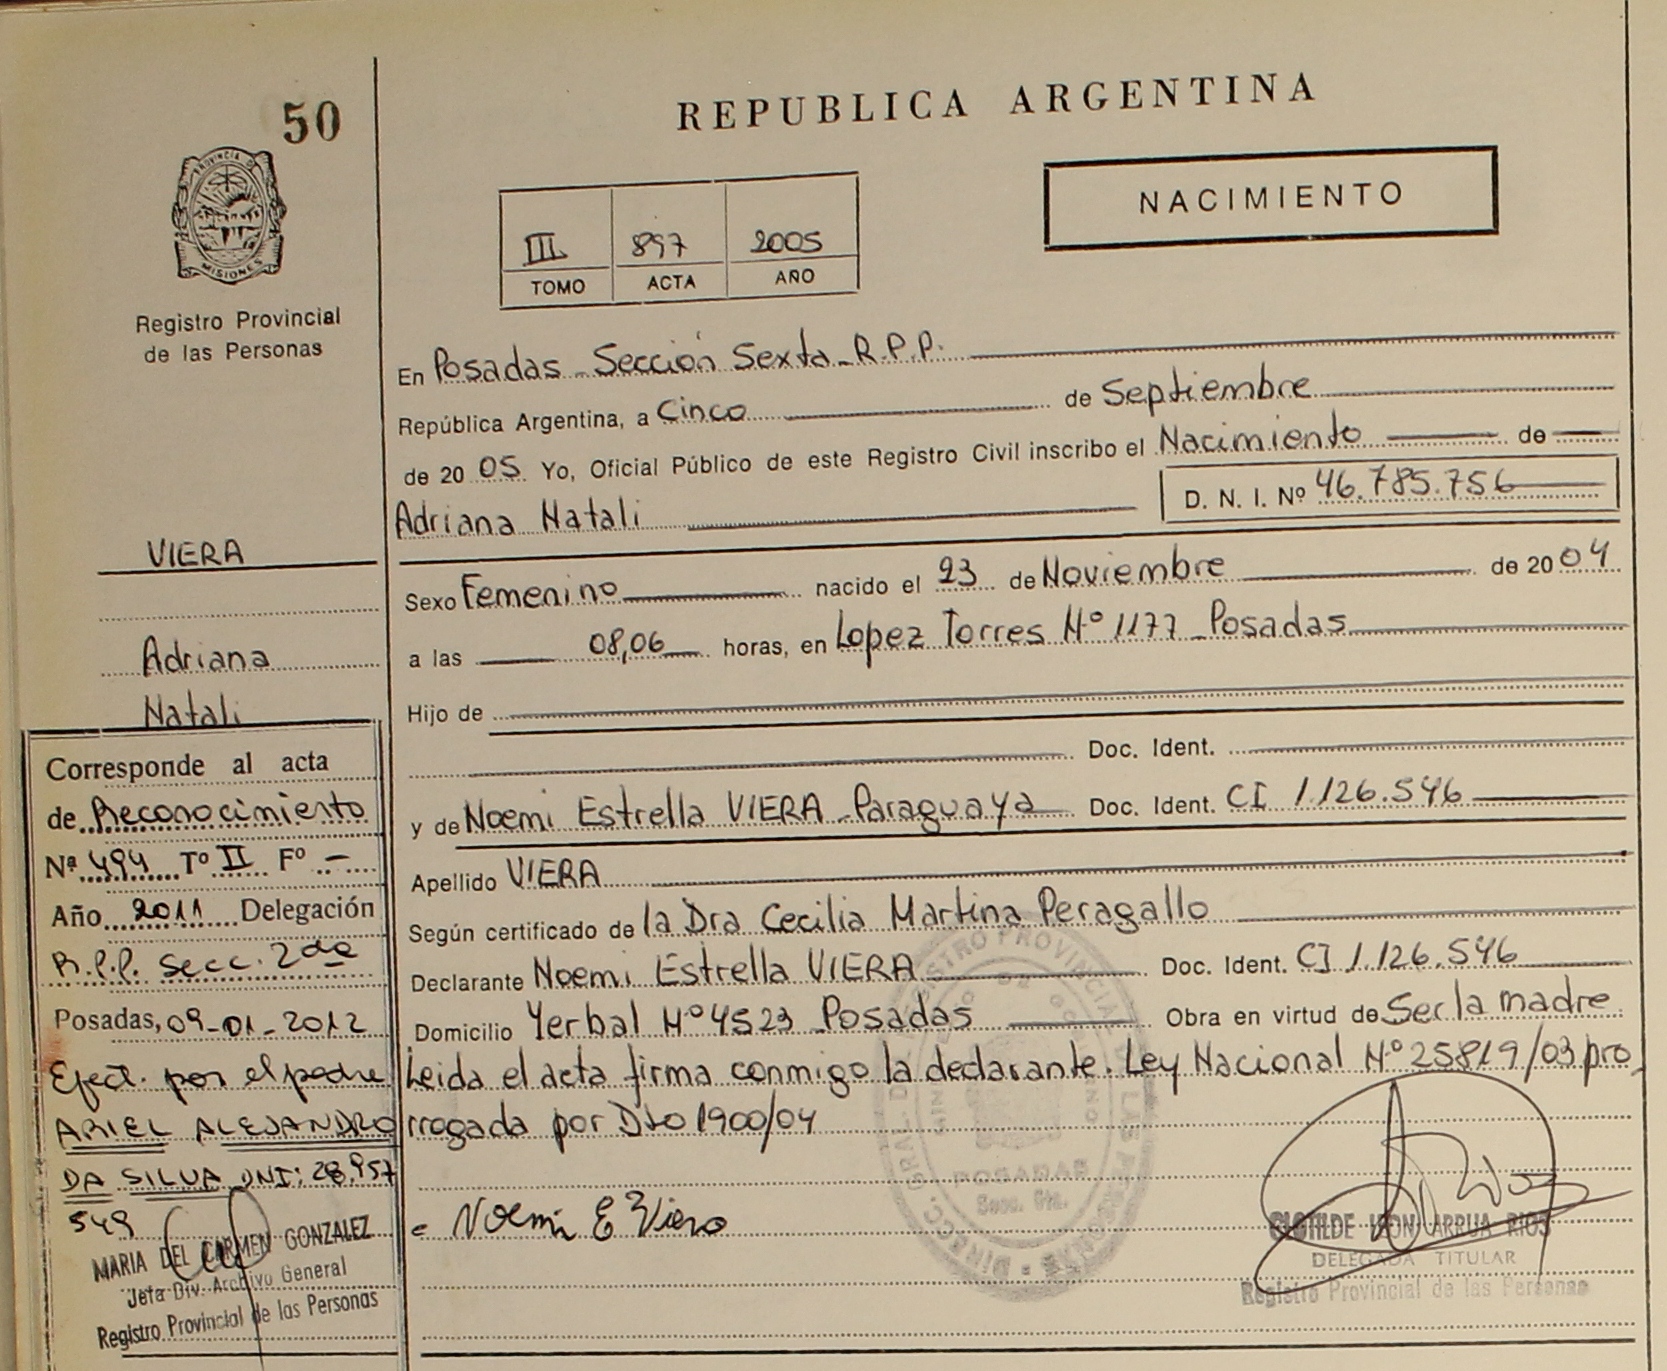 50
PROVINCIA DE
MISIONES
Registro Provincial
de las Personas
REPUBLICA ARGENTINA
NACIMIENTO
III 897 2005
TOMO ACTA AÑO
En Posadas - Sección Sexta - R.P.P.
República Argentina, a Cinco de Septiembre
de 2005 Yo, Oficial Público de este Registro Civil inscribo el Nacimiento de
Adriana Natali D. N. I. Nº 46.785.756
Sexo Femenino nacido el 23 de Noviembre de 2004
a las 08,06 horas, en Lopez Torres Nº 1177 - Posadas
Hijo de
Doc. Ident.
y de Noemi Estrella VIERA - Paraguaya Doc. Ident. CI 1.126.546
Apellido VIERA
Según certificado de la Dra Cecilia Martina Peragallo
Declarante Noemi Estrella VIERA Doc. Ident. CI 1.126.546
Domicilio Yerbal Nº 4523 Posadas Obra en virtud de Ser la madre
Leida el acta firma conmigo la declarante. Ley Nacional Nº 25819/03 pro
rrogada por Dto 1900/04
Noemi E Viera
POSADAS
Secc. 6ta.
CLOTILDE LEONI ARRUA RIOS
DELEGADA TITULAR
Registro Provincial de las Personas
VIERA
Adriana
Natali
Corresponde al acta
de Reconocimiento
Nº 494 Tº II Fº -
Año 2011 Delegación
R.P.P. Secc. 2da
Posadas, 09-01-2012
Efect. por el padre
ARIEL ALEJANDRO
DA SILVA DNI: 28.957
549
MARIA DEL CARMEN GONZALEZ
Jefa Div. Archivo General
Registro Provincial de las Personas